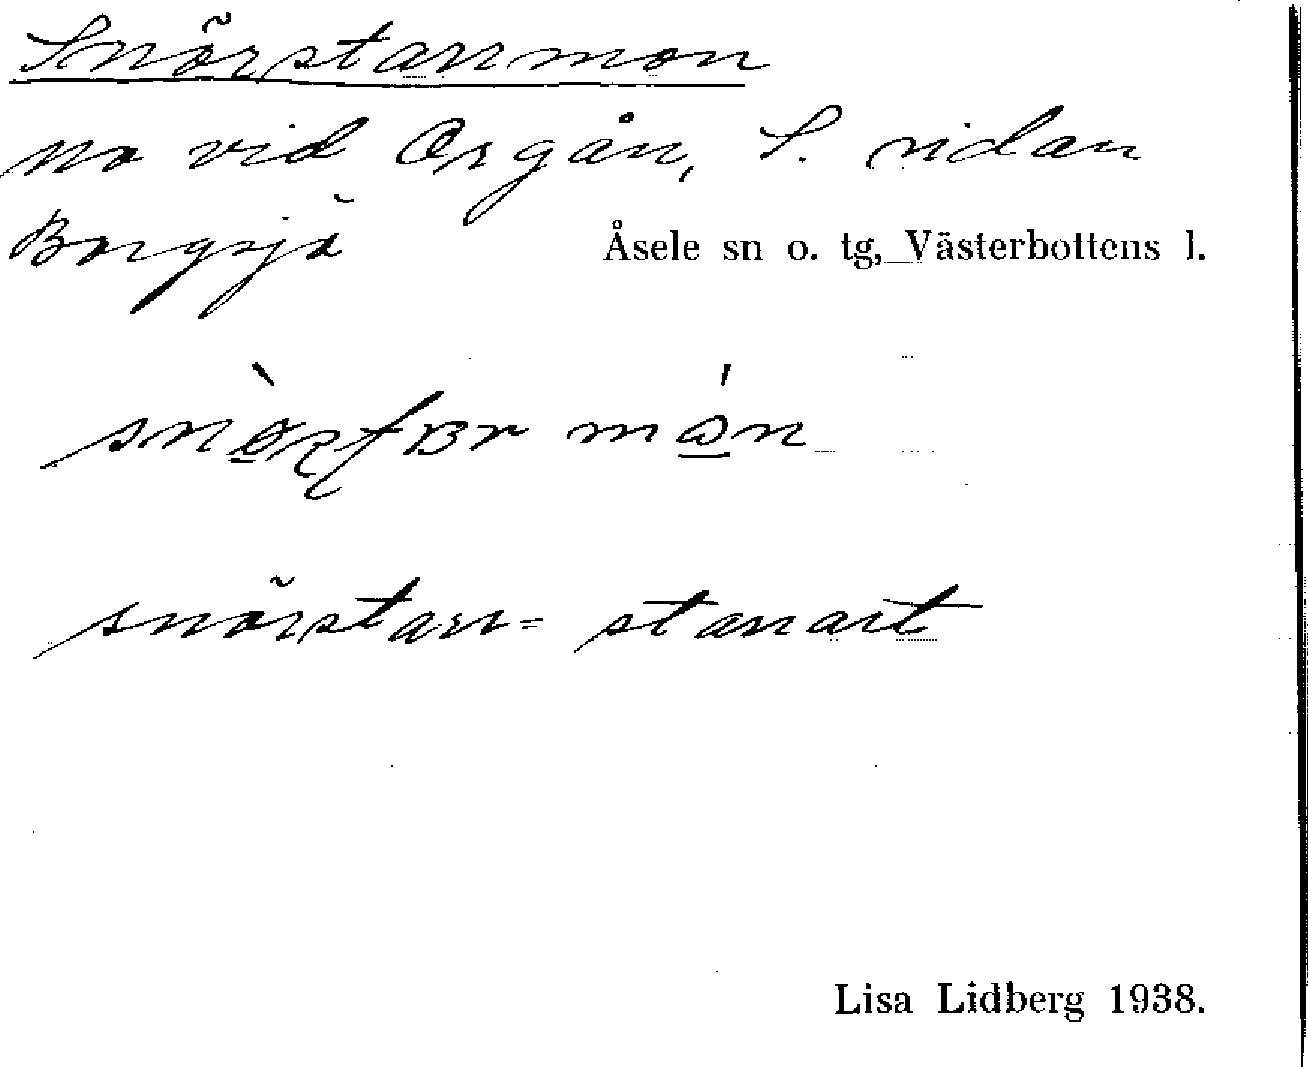 Snörstarrmon
mo vid Orgån, S. sidan
Borgsjö Åsele sn o. tg, Västerbottens l.
snörstarr = starrart
Lisa Lidberg 1938.